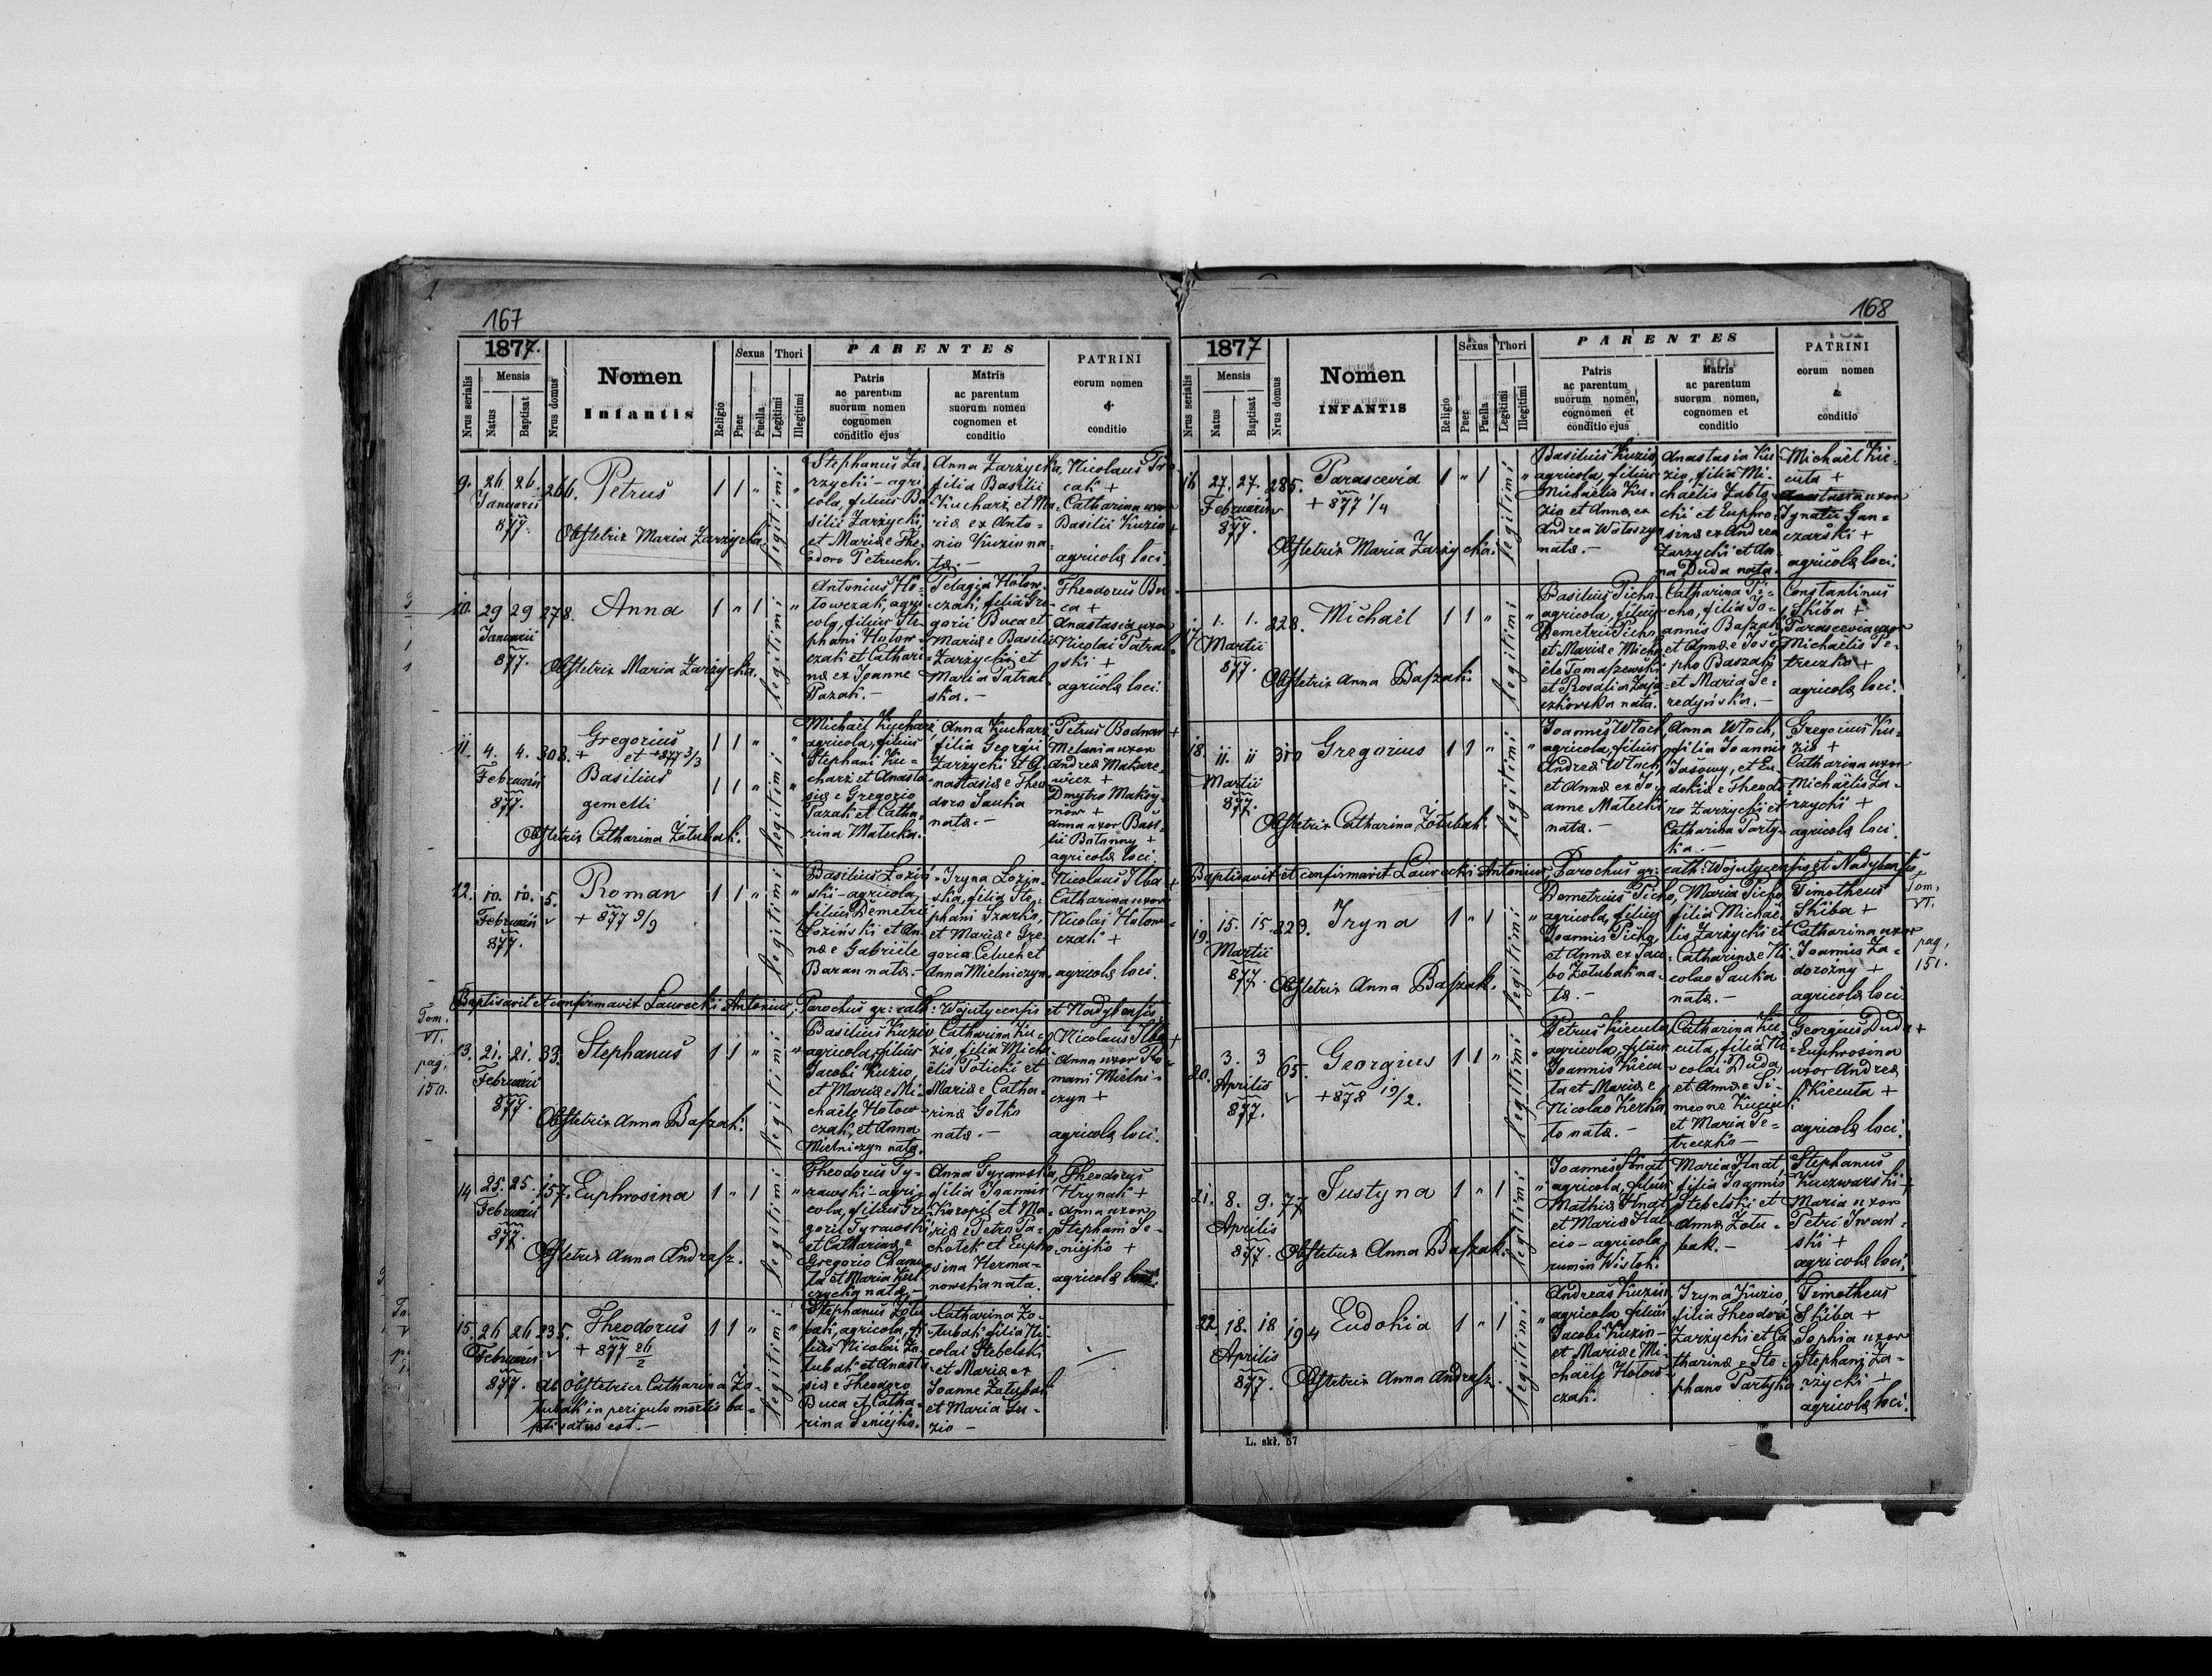 167
1877.
Nrus serialis
Mensis
Natus
Baptisat
Nrus domus
Nomen
Infantis
Religio
Sexus
Puer
Puella
Thori
Legitimi
Illegitimi
PARENTES
Patris
ac parentum
suorum nomen
cognomen
conditio ejus
Matris
ac parentum
suorum nomen
cognomen et
conditio
PATRINI
eorum nomen
&
conditio
9. 26 26. 266. Petrus 1 1 "
Januarii
877.
Obstetrix Maria Zarzycka.
legitimi
Stephanus Za-
rzycki - agri-
cola, filius Ba-
silii Zarzycki,
et Mariæ e The-
odoro Petruch.
Anna Zarzycka,
filia Basilii
Kucharz et Ma-
riæ ex Anto-
nio Kuzio na-
tæ.-
Nicolaus
Catharina uxor
Basilii Kuzio +
agricolæ loci.
10. 29 29 278. Anna 1 " 1 "
Januarii
877.
Obstetrix Maria Zarzycka.
legitimi
Antonius Ho-
towczak, agri-
cola, filius Ste-
phani Hotow-
czak et Cathari-
næ ex Joanne
Pazak.-
Pelagia Hotow-
czak, filia Gre-
gorii Buca et
Mariæ e Basilio
Zarzycki et
Maria Patral-
ska.-
Theodorus Bu-
ca +
Anastasia uxor
Nicolai Patral-
ski +
agricolæ loci.
11. 4. 4. 308. Gregorius 1 1 " "
+ et +877 3/3
Februarii
877.
Basilius 1 1 " "
gemelli
Obstetrix Catharina Zołubak.
legitimi legitimi
Michaël Kucharz
agricola, filius
Stephani Ku-
charz et Anasta-
siæ e Gregorio
Pazak et Catha-
rina Matecka.
Anna Kucharz
filia Georgii
Zarzycki et A-
nastasiæ e Theo-
doro Sauka
nata.-
Petrus Bodnar +
Melania uxor
Andreæ Makare-
wicz +
Dmytro Maksy-
mow +
Anna uxor Basi-
lii
agricolæ loci.
12. 10. 10. 5. Roman 1 1 " "
Februarii + 877 9/9
877.
legitimi
Basilius Łoziń-
ski - agricola,
filius Demetri
Łoziński et An-
næ e Gabriële
Baran natæ.-
Iryna Łozin-
ska, filia Ste-
phani Szarko,
et Mariæ e Gre-
goria Celuch et
Anna Mielniczyn.
Nicolaus Ilba +
Catharina uxor
Nicolai Hotow-
czak +
agricolæ loci.
Baptisavit et confirmavit Laurecki Antonius, Parochus gr: cath: Wojutycensis et Nadybensis.
Tom.
VI.
pag.
150.
13. 21. 21. 33. Stephanus 1 1 " "
Februarii
877.
Obstetrix Anna Baszak.
legitimi
Basilius Kuzio,
agricola, filius
Jacobi Kuzio,
et Mariæ e Mi-
chaële Hotow-
czak, et Anna
Mielniczyn nata.
Catharina Ku-
zio, filia Micha-
ëlis Poticki et
Mariæ e Catha-
rina Gołko
nata.-
Nicolaus Ilba +
Anna uxor Ro-
mani Mielni-
czyn +
agricolæ loci.
14 25. 25. 157. Euphrosina 1 " 1 "
Februarii
877.
Obstetrix Anna Andrasz.
legitimi
Theodorus Ty-
rawski - agri-
cola, filius Gre-
gorii Tyrawski
et Catharinæ e
Gregorio
ta et Maria
nata.-
Anna Tyrawska,
filia Joannis
Koropil et Ma-
riæ e Petro Pa-
chotek et Euphro-
sina Herma-
nowska nata.
Theodorus
Hrynak +
Anna uxor
Stephani Se-
niejko +
agricolæ loci.
15. 26 26 235. Theodorus 1 1 " "
Februarii + 877 26/2
877. ab Obstetrice Catharina Zo-
łubak in periculo mortis ba-
ptisatus est.-
legitimi
Stephanus Zołu-
bak, agricola, fi-
lius Nicolai Zo-
łubak et Anasta-
siæ e Theodoro
Buca et Catha-
rina Seniejko.
Catharina Zo-
łubak, filia Ni-
colai Stebelski
et Mariæ ex
Joanne Zołubak
et Maria Ku-
zio -
168
1877
Nrus serialis
Mensis
Natus
Baptisat
Nrus domus
Nomen
INFANTIS
Religio
Sexus
Puer
Puella
Thori
Legitimi
Illegitimi
PARENTES
Patris
ac parentum
suorum nomen,
cognomen et
conditio ejus
Matris
ac parentum
suorum nomen,
cognomen et
conditio
PATRINI
eorum nomen
&
conditio
16 27. 27. 285. Parascevia 1 " 1 "
Februarii + 877 1/4
877.
Obstetrix Maria Zarzycka.
legitimi
Basilius Kuzio,
agricola, filius
Michaëlis Ku-
zio et Annæ, ex
Andrea Wołoszyn
natæ.-
Anastasia Ku-
zio, filia Mi-
chaëlis Zabło-
cki et Euphro-
sinæ ex Andrea
Zarzycki et An-
na Duda nata.
Michaël Kie-
cuta +
Anastasia uxor
Ignatii Gan-
czarski +
agricolæ loci.
17 1. 1. 228. Michaël 1 1 " "
Martii
877.
Obstetrix Anna Baszak.
legitimi
Basilius Picho-
agricola, filius
Demetrii Picho
et Mariæ e Micha-
ële Tomaszewski
et Rosalia Zają-
czkowska nata.
Catharina Pi-
cho, filia Jo-
annis Baszak
et Annæ e Jose-
pho Baszak
et Maria Se-
redyńska.-
Constantinus
Skiba +
Parascevia uxor
Michaëlis Pe-
treczko +
agricolæ loci.
18. 11. 11 310 Gregorius 1 1 " "
Martii
877.
Obstetrix Catharina Zołubak.
legitimi
Joannes Włoch,
agricola, filius
Andreæ Włoch,
et Annæ ex Jo-
anne Matecki
natæ.-
Anna Włoch,
filia Joannis
Jasowy, et Eu-
dokiæ e Theodo-
ro Zarzycki et
Catharina Party-
ka.-
Gregorius Ku-
zio +
Catharina uxor
Michaëlis Za-
rzycki +
agricolæ loci.
Baptisavit et confirmavit Laurecki Antonius, Parochus gr: cath: Wojutycensis et Nadybensis.
Tom.
VI.
pag.
151.
19. 15. 15. 229. Iryna 1 " 1 "
Martii
877.
Obstetrix Anna Baszak.
legitimi
Demetrius Picho,
agricola, filius
Joannis Picho,
et Annæ ex Jaco-
bo Zołubak na-
tæ.-
Maria Picho
filia Michaë-
lis Zarzycki et
Catharinæ e Ni-
colao Sauka
nata.-
Timotheus
Skiba +
Catharina uxor
Joannis Za-
dorożny +
agricolæ loci
20. 3. 3 65. Georgius 1 1 " "
Aprilis + 878 19/2.
877.
legitimi
Petrus Kiecuta,
agricola, filius
Joannis Kiecu-
ta et Mariæ e
Nicolao
to nata.-
Catharina Kie-
cuta, filia Ni-
colai Duda,
et Annæ e Si-
meone
et Maria Pe-
treczko -
Georgius Duda +
Euphrosina
uxor Andreæ
Kiecuta +
agricolæ loci.
21. 8. 9. 77 Justyna 1 " 1 "
Aprilis
877. Obstetrix Anna Baszak.
legitimi
Joannes Hnat
agricola, filius
Mathiæ Hnat
et Mariæ Hal-
cio - agricola-
rum in Wistok.
Maria Hnat,
filia Joannis
Stebelski et
Annæ Zołu-
bak.-
Stephanus
Kaczwarski +
Maria uxor
Petri Iwan-
ski +
agricolæ loci.
22. 18. 18 194 Eudokia 1 " 1 "
Aprilis
877. Obstetrix Anna Andrasz.
legitimi
Andreas Kuzio
agricola, filius
Jacobi Kuzio -
et Mariæ e Mi-
chaële Hotow-
czak.
Iryna Kuzio,
filia Theodori
Zarzycki et Ca-
tharinæ e Ste-
phano Partyka
Timotheus
Skiba +
Sophia uxor
Stephani Za-
rzycki +
agricolæ loci.
L. skł. 57